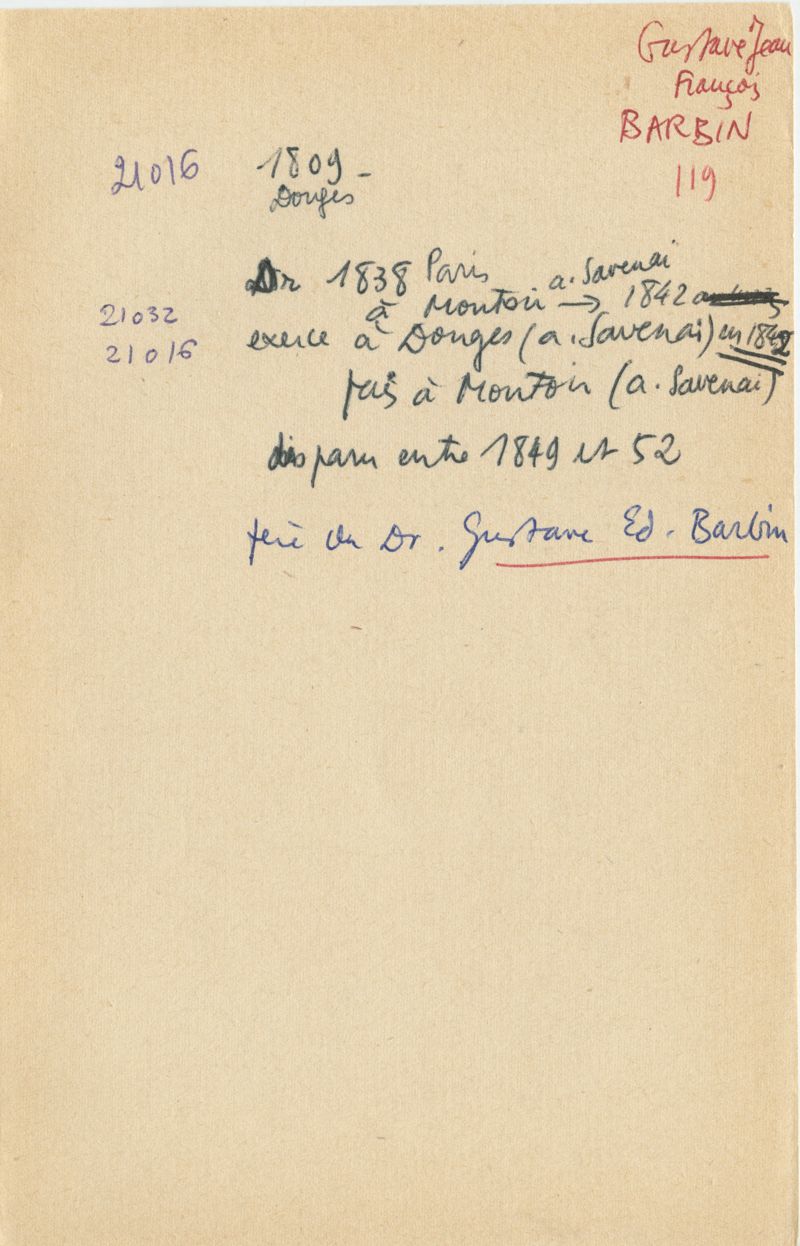 Gustave Jean
François
BARBIN
119
21016 1809 -
Donges
Dr 1838 Paris
à Montoir a. Savenai → 1842
21032
exerce à Donges (a. Savenai) en 1842
21016
puis à Montoir (a. Savenai)
disparu entre 1849 et 52
père du Dr. Gustave Ed. Barbin